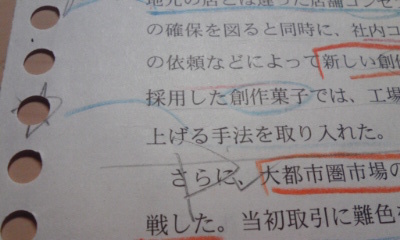 地元の店とは違った店舗コンセ
の確保を図ると同時に、社内コ
の依頼などによって新しい創
採用した創作菓子では、工場
上げる手法を取り入れた。
さらに、大都市圏市場の
戦した。当初取引に難色